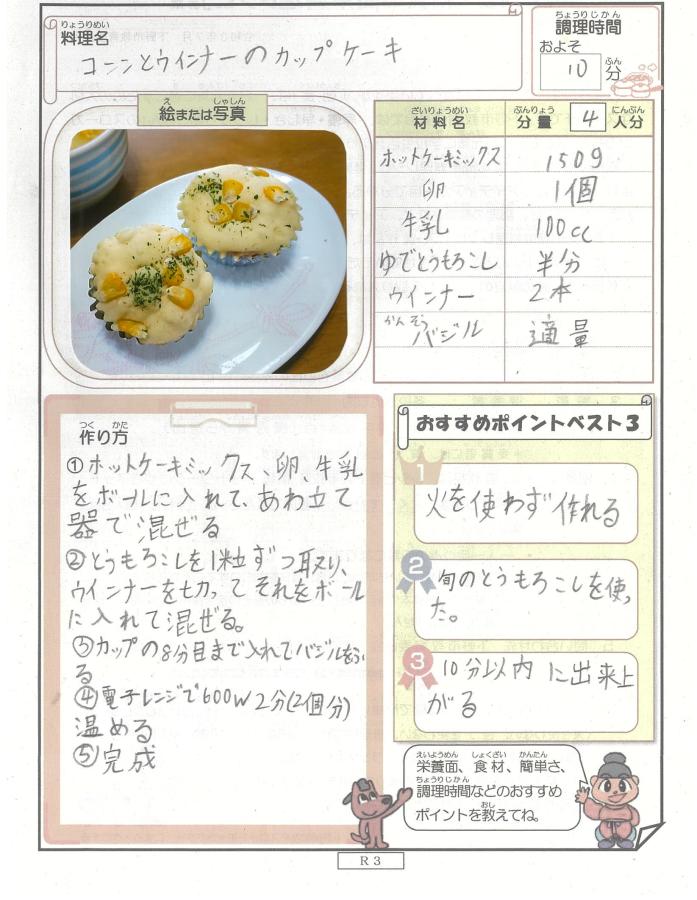 りょうりめい
料理名
コーンとウインナーのカップケーキ
ちょうりじかん
調理時間
およそ
10 ふん 分
え しゃしん
絵または写真
ざいりょうめい ぶんりょう にんぶん
材料名 分量 4 人分
ホットケーキミックス 150g
卵 1個
牛乳 100cc
ゆでとうもろこし 半分
ウインナー 2本
かんそう
バジル 適量
つく かた
作り方
①ホットケーキミックス、卵、牛乳
をボールに入れて、あわ立て
器で混ぜる
②とうもろこしを1粒ずつ取り、
ウインナーを切って それをボール
に入れて混ぜる。
③カップの8分目まで入れてバジルをふ
る
④電子レンジで600W2分(2個分)
温める
⑤完成
おすすめポイントベスト3
1
火を使わず作れる
2
旬のとうもろこしを使っ
た。
3
10分以内に出来上
がる
えいようめん しょくざい かんたん
栄養面、食材、簡単さ、
ちょうりじかん
調理時間などのおすすめ
おし
ポイントを教えてね。
R3